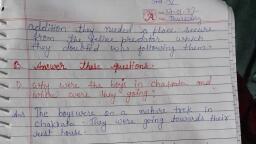 Thursday
addition they needed a place secure
from the yellow predator which
they doubted was following them.
B. Answer these questions.
1. Why were the boys in Chakrata and
where were they going?
Ans The boys were on a nature trek in
chakrata. They were going towards their
rest house.